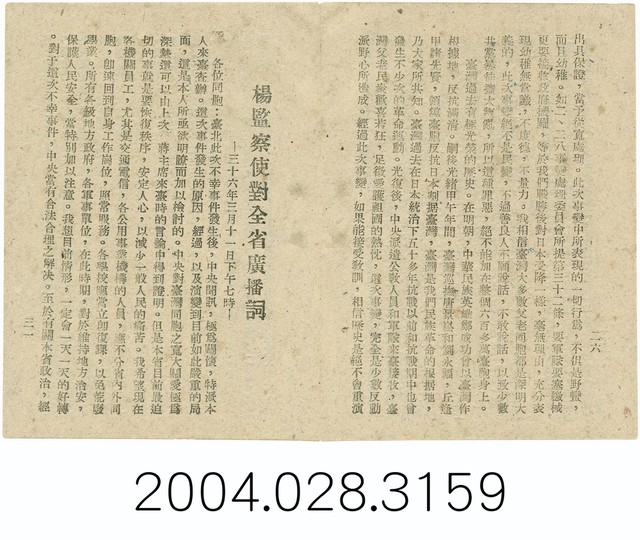 出具保證，當予從寬處理。此次事變中所表現的一切行為，不但是野蠻，
而且幼稚。如二、二八事變處理委員會所提第三十二條，要軍隊要憲繳械
更要接收政府機關，等於我們戰勝後對日本受降一樣，毫無理由，充分表
現幼稚無常識，不度德，不量力。我相信臺灣大多數父老同胞都是深明大
義的，此次事變絕不是民變，過善良人不願說話，不敢說話，以致少數
共黨暴徒擴大無憚，所以這種罪惡，絕不能加在整個六百多萬臺胞身上。
臺灣過去有極光榮的歷史。在明朝，中華民族英雄鄭成功曾以臺灣作
根據地，反抗滿清。嗣後光緒甲午年間，臺灣巡撫唐景崧和劉永福，丘逢
甲諸先賢，領導臺民反抗日本割據臺灣，臺灣是我們民族革命的根據地，
乃大家所共知。臺灣過去在日本統治下五十多年抗戰以前和抗戰期中也曾
發生不少次的革命運動。光復後，中央派遣公教人員和軍隊來臺接收，臺
灣父老民眾歡喜若狂，足徵愛護祖國的熱忱，這次事變，完全是少數反動
派野心所造成。經過此次事變，如果能接受教訓，相信歷史是絕不會重演
二六
楊監察使對全省廣播詞
—三十六年三月十一日下午七時—
各位同胞：臺北此次不幸事件發生後，中央聞訊，極為關懷，特派本
人來臺查辦。這次事件發生的原因，經過，以及演變到目前如此嚴重的局
面，還是本人所亟欲明瞭而加以檢討的。中央對臺灣同胞之寬大關愛極為
深摯這可以由上次　蔣主席來臺時的言論中得到證明。但是本省目前最迫
切的事就是要恢復秩序，安定人心，以減少一般人民的痛苦。我希望現在
各機關員工，尤其是交通電信，各公用事業機構的人員，應不分省內外同
胞，即速回到自身工作崗位，照常服務。各學校應當立即復課，以免荒廢
學業。所有各級地方政府，各軍事單位，在此時期，對於維持地方治安，
保護人民安全，當特別加以注意。我想目前情形，一定會一天一天的好轉
。對于這次不幸事件，中央當有合法合理之解決。至於有關本省政治，經
三一
2004.028.3159